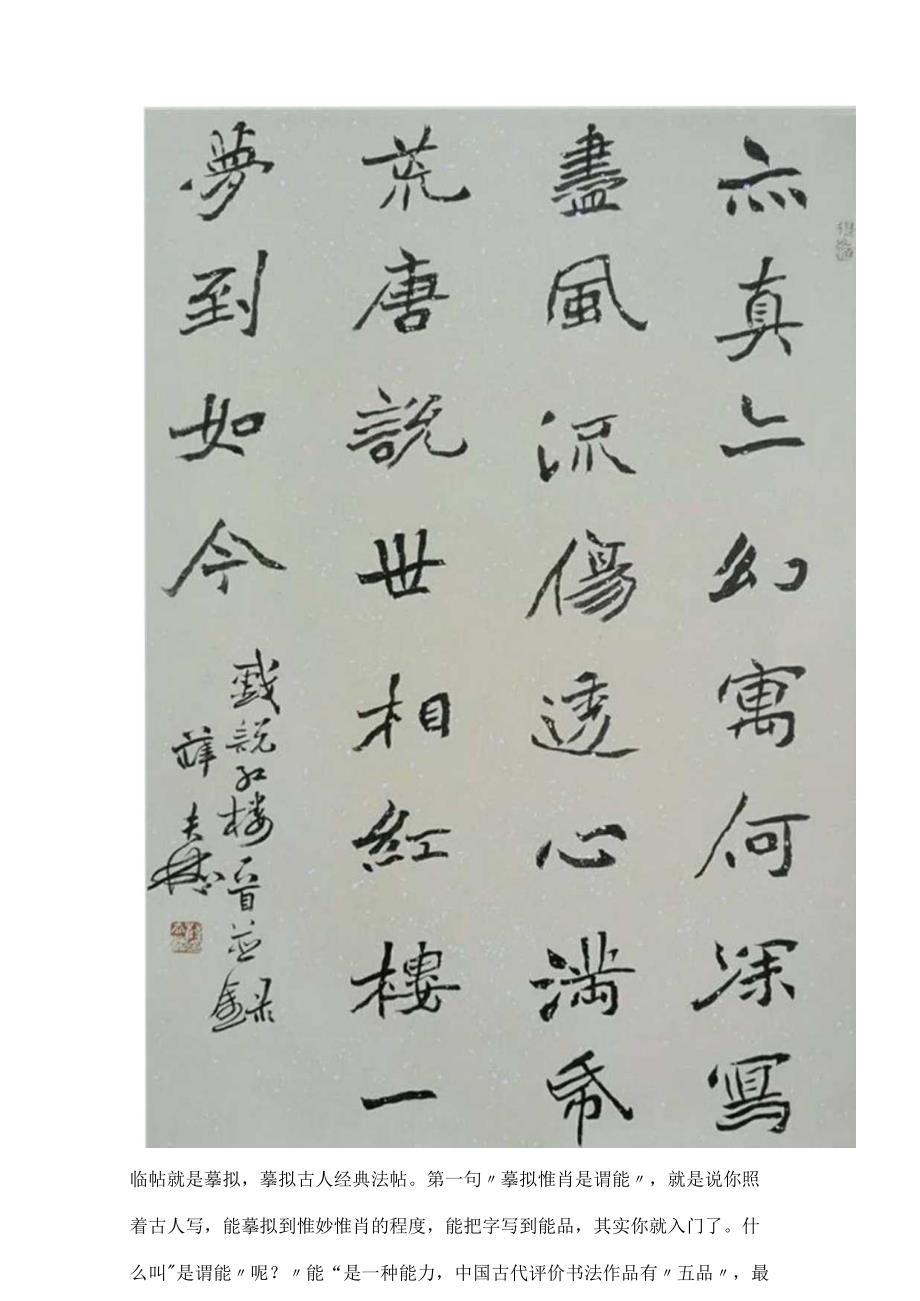 亦真亦幻寓何深寫
盡風流傷透心滿帋
荒唐說世相紅樓一
夢到如今
戲説红楼一首並錄
薛夫彬
临帖就是摹拟，摹拟古人经典法帖。第一句〃摹拟惟肖是谓能〃，就是说你照
着古人写，能摹拟到惟妙惟肖的程度，能把字写到能品，其实你就入门了。什
么叫"是谓能〃呢？〃能“是一种能力，中国古代评价书法作品有〃五品〃，最